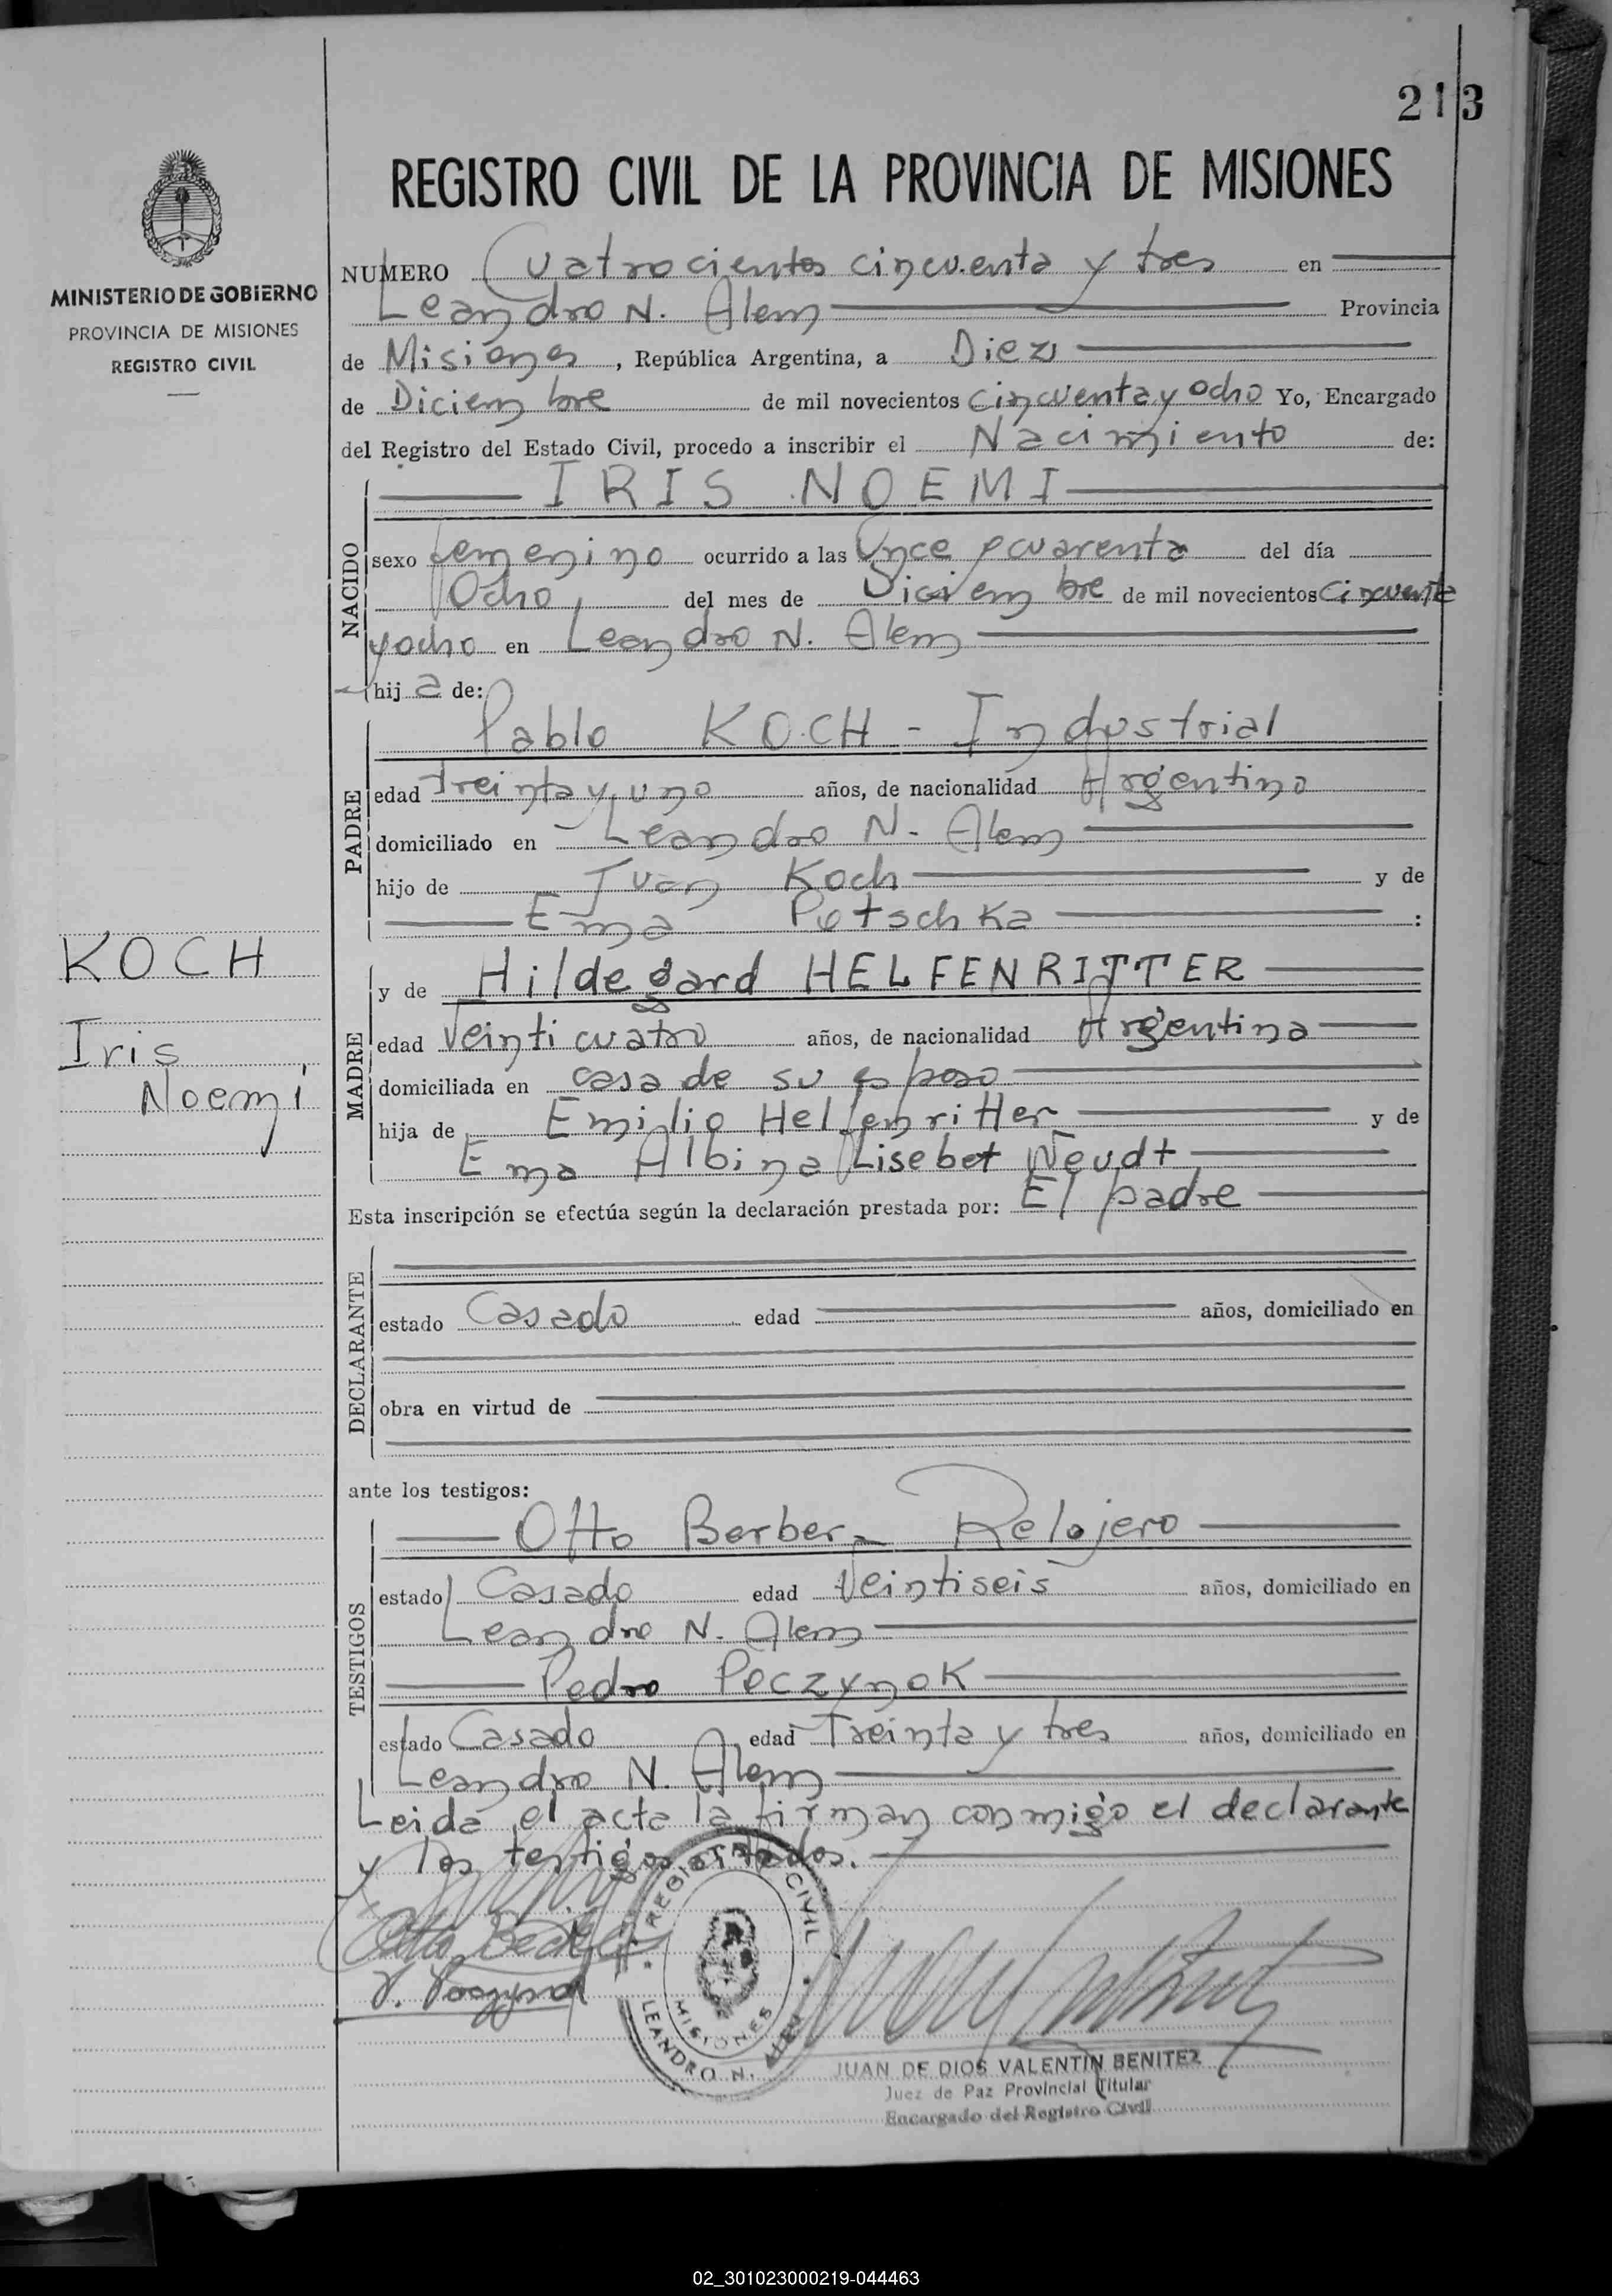 213
REGISTRO CIVIL DE LA PROVINCIA DE MISIONES
MINISTERIO DE GOBIERNO
PROVINCIA DE MISIONES
REGISTRO CIVIL
NUMERO Cuatrocientos cincuenta y tres en
Leandro N. Alem Provincia
de Misiones, República Argentina, a Diez
de Diciembre de mil novecientos cincuenta y ocho Yo, Encargado
del Registro del Estado Civil, procedo a inscribir el Nacimiento de:
IRIS NOEMI
NACIDO
sexo femenino ocurrido a las Once y cuarenta del día
Ocho del mes de Diciembre de mil novecientos cincuenta
y ocho en Leandro N. Alem
hija de:
Pablo KOCH - Industrial
PADRE
edad treinta y uno años, de nacionalidad Argentino
domiciliado en Leandro N. Alem
hijo de Juan Koch y de
Ema Petschka :
KOCH
Iris
Noemi
y de Hildegard HELFENRITTER
MADRE
edad Veinticuatro años, de nacionalidad Argentina
domiciliada en casa de su esposo
hija de Emilio Helfenritter y de
Ema Albina Lisebet Neudt
Esta inscripción se efectúa según la declaración prestada por: El padre
DECLARANTE
estado Casado edad años, domiciliado en
obra en virtud de
ante los testigos:
Otto Berber - Relojero
TESTIGOS
estado Casado edad Veintiseis años, domiciliado en
Leandro N. Alem
Pedro Poczynok
estado Casado edad Treinta y tres años, domiciliado en
Leandro N. Alem
Leida el acta la firman conmigo el declarante
y los testigos citados.
REGISTRO CIVIL
MISIONES
LEANDRO N. ALEM
JUAN DE DIOS VALENTIN BENITEZ
Juez de Paz Provincial Titular
Encargado del Registro Civil
02_301023000219-044463